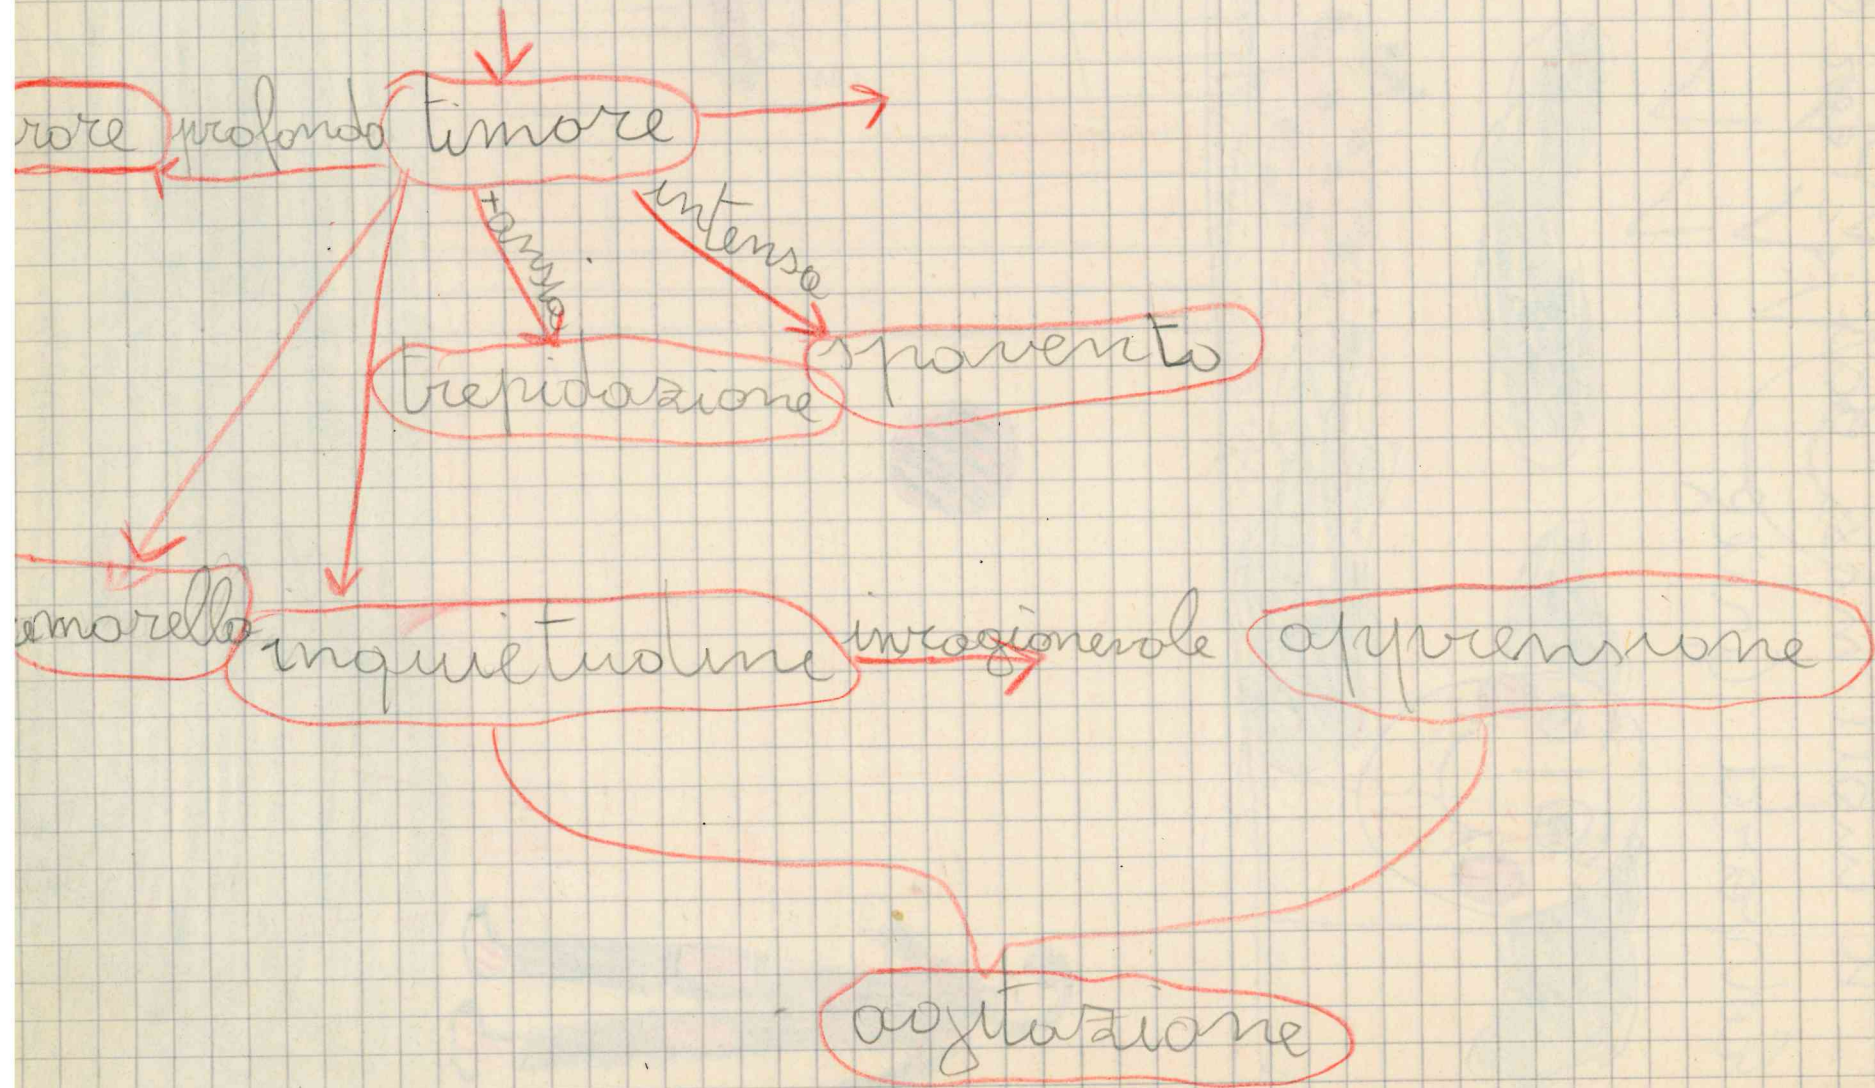 rore profondo timore
+ansia intenso
trepidazione spavento
emorello inquietudine irragionevole apprensione
agitazione